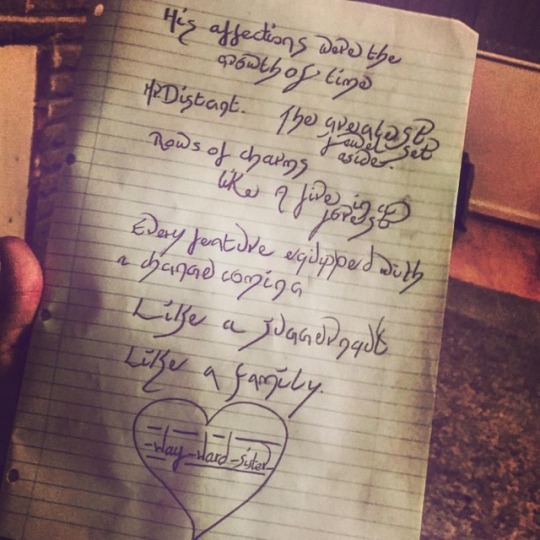 His affections were the
growth of time
Mr Distant. The greatest
jewel set
aside.
Rows of charms
like a fire in a
forest
Every feature equipped with
a change coming
Like a juggernaut
Like a family.
-Way-Ward-Sister